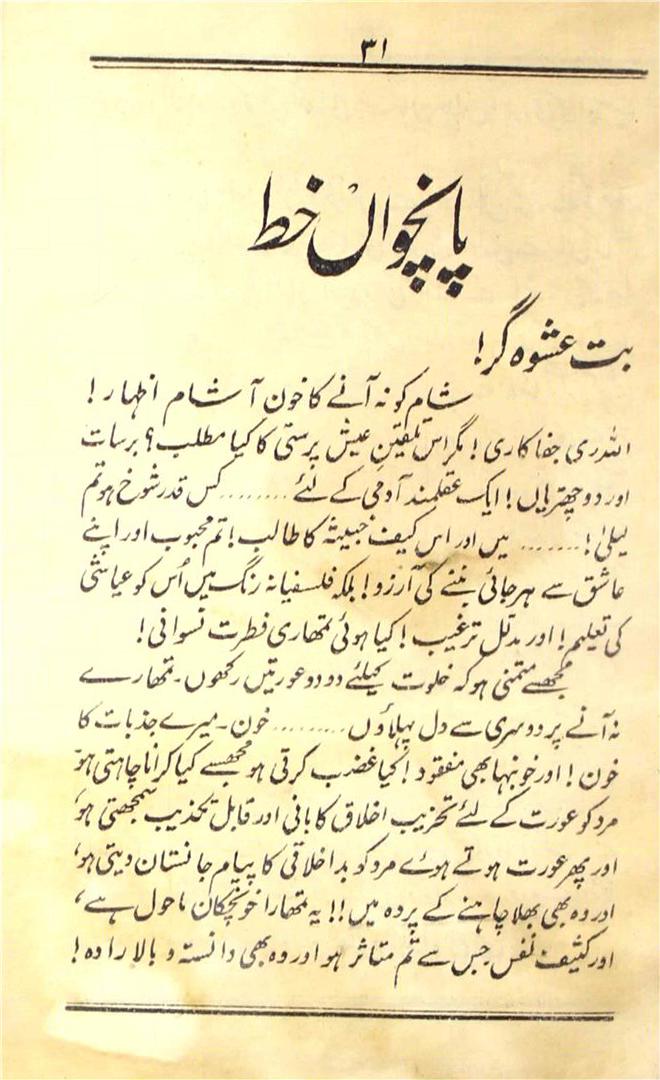 ۳۱
پانچواں خط
بت عشوہ گر!
شام کو نہ آنے کا خون آشام اظہار!
اللہ ری جفا کاری! مگر اس تلقینِ عیش پرستی کا کیا مطلب؟ برسات
اور دو چھتریاں! ایک عقلمند آدمی کے لئے ........ کس قدر شوخ ہو تم
لیلیٰ! ....... میں اور اس کیف خبیثہ کا طالب! تم محبوب اور اپنے
عاشق سے ہرجائی بننے کی آرزو! بلکہ فلسفیانہ رنگ میں اُس کو عیاشی
کی تعلیم! اور مدلل ترغیب! کیا ہوئی تمھاری فطرت نسوانی!
مجھسے متمنی ہو کہ خلوت کیلئے دو دو عورتیں رکھوں۔ تمھارے
نہ آنے پر دوسری سے دل بہلاؤں ......... خون۔ میرے جذبات کا
خون! اور خونبہا بھی مفقود! کیا غضب کرتی ہو مجھسے کیا کرانا چاہتی ہو
مرد کو عورت کے لئے تخریب اخلاق کا بانی اور قابل تکذیب سمجھتی ہو،
اور پھر عورت ہوتے ہوئے مرد کو بد اخلاقی کا پیام جانستان دیتی ہو،
اور وہ بھی بھلا چاہنے کے پردہ میں!! یہ تمھارا خونچکان ماحول ہے،
اور کثیف نفس جس سے تم متاثر ہو اور وہ بھی دانستہ و بالارادہ!